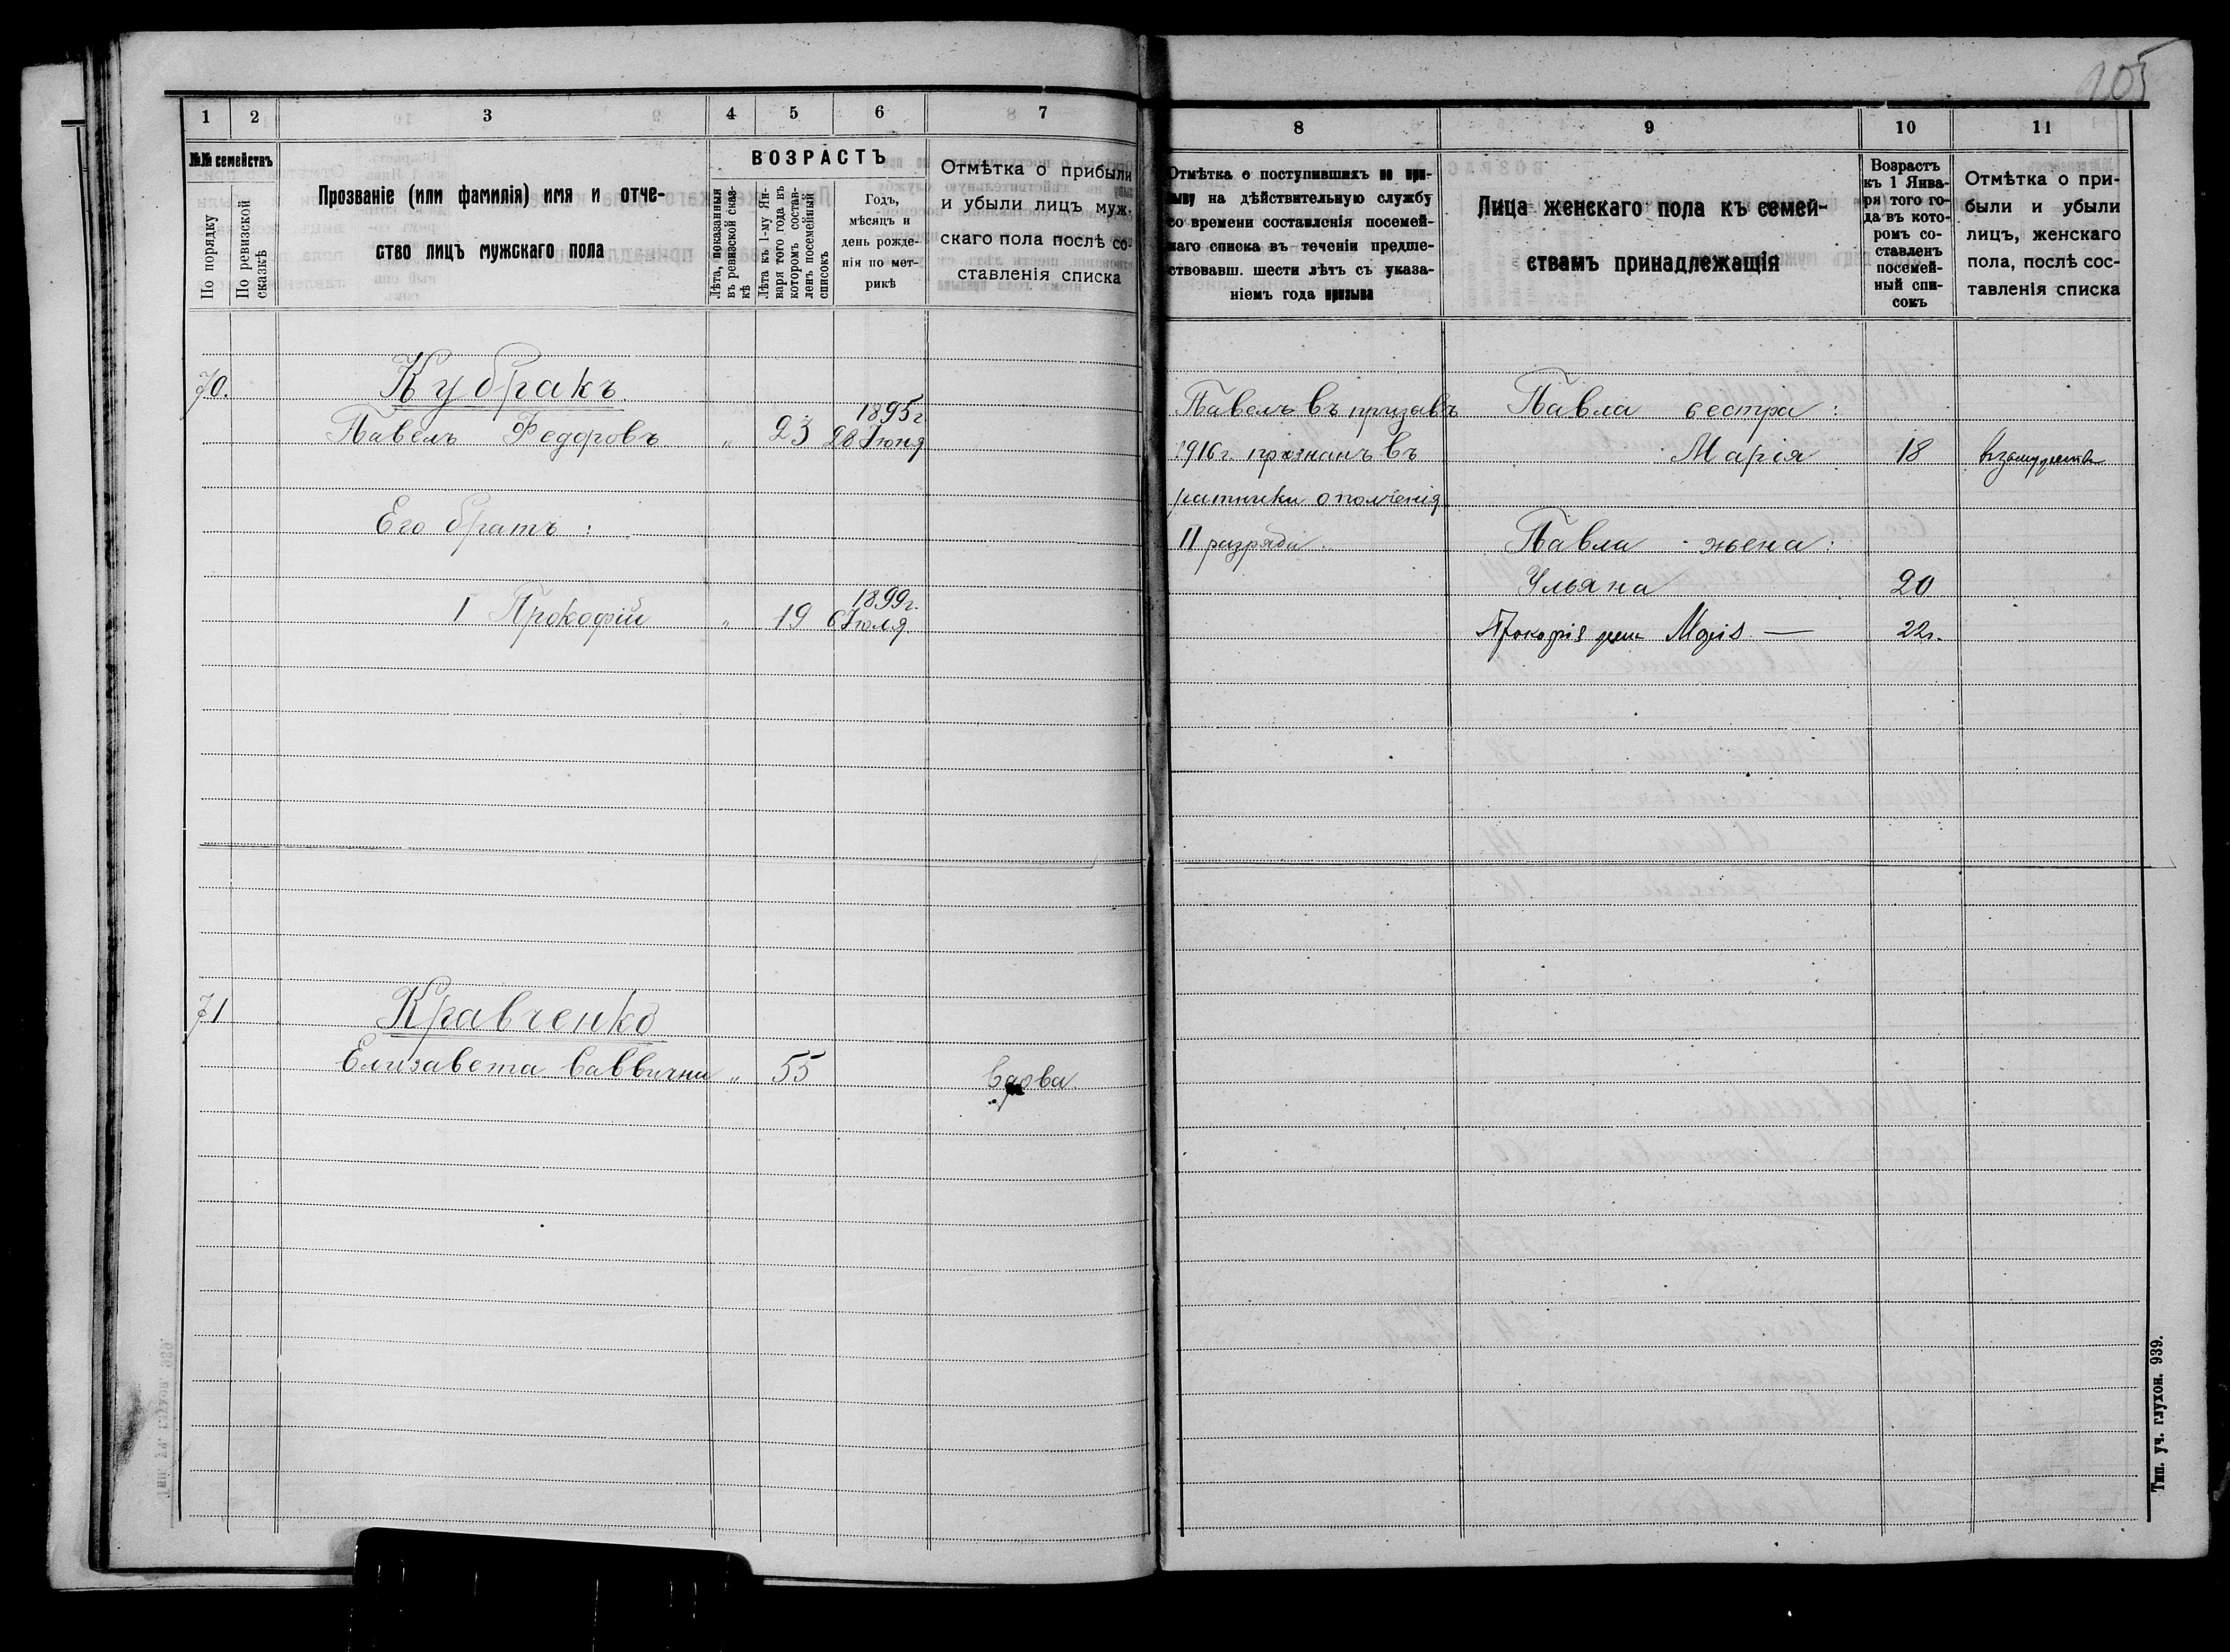 105
1 2 3 4 5 6 7
№№ семействъ
По порядку
По ревизской сказкѣ
Прозваніе (или фамилія) имя и отче-
ство лицъ мужскаго пола
ВОЗРАСТЪ
Лѣта, показанныя
въ ревизской сказ-
кѣ
Лѣта къ 1-му Ян-
варя того года въ
которомъ состав-
ленъ посемейный
списокъ
Годъ,
мѣсяцъ и
день рожде-
нія по мет-
рикѣ
Отмѣтка о прибыли
и убыли лицъ муж-
скаго пола послѣ со-
ставленія списка
70. Кубракъ
1895 г.
Павелъ Федоровъ „ 23 28 Іюня
Его братъ:
1899 г.
I Прокофій „ 19 6 Іюля
71 Кравченко
Елизавета Саввична „ 55 вдова
8 9 10 11
Отмѣтка о поступившихъ по при-
зыву на дѣйствительную службу
со времени составленія посемей-
наго списка въ теченіи предше-
ствовавш. шести лѣтъ съ указа-
ніемъ года призыва
Лица женскаго пола къ семей-
ствамъ принадлежащія
Возрастъ
къ 1 Янва-
ря того го-
да въ кото-
ромъ со-
ставленъ
посемей-
ный спи-
сокъ
Отмѣтка о при-
были и убыли
лицъ, женскаго
пола, послѣ сос-
тавленія списка
Павелъ въ призывъ Павла сестра:
1916 г. признанъ въ Марія 18 въ замужествѣ
ратники ополченія
II разряда. Павла жена:
Ульяна 20
Прокофія жена Марія — 22 л.
Тип. уч. глухон. 939.